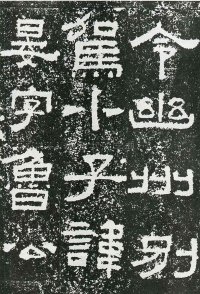 令幽州別
駕小子諱
晏字魯公